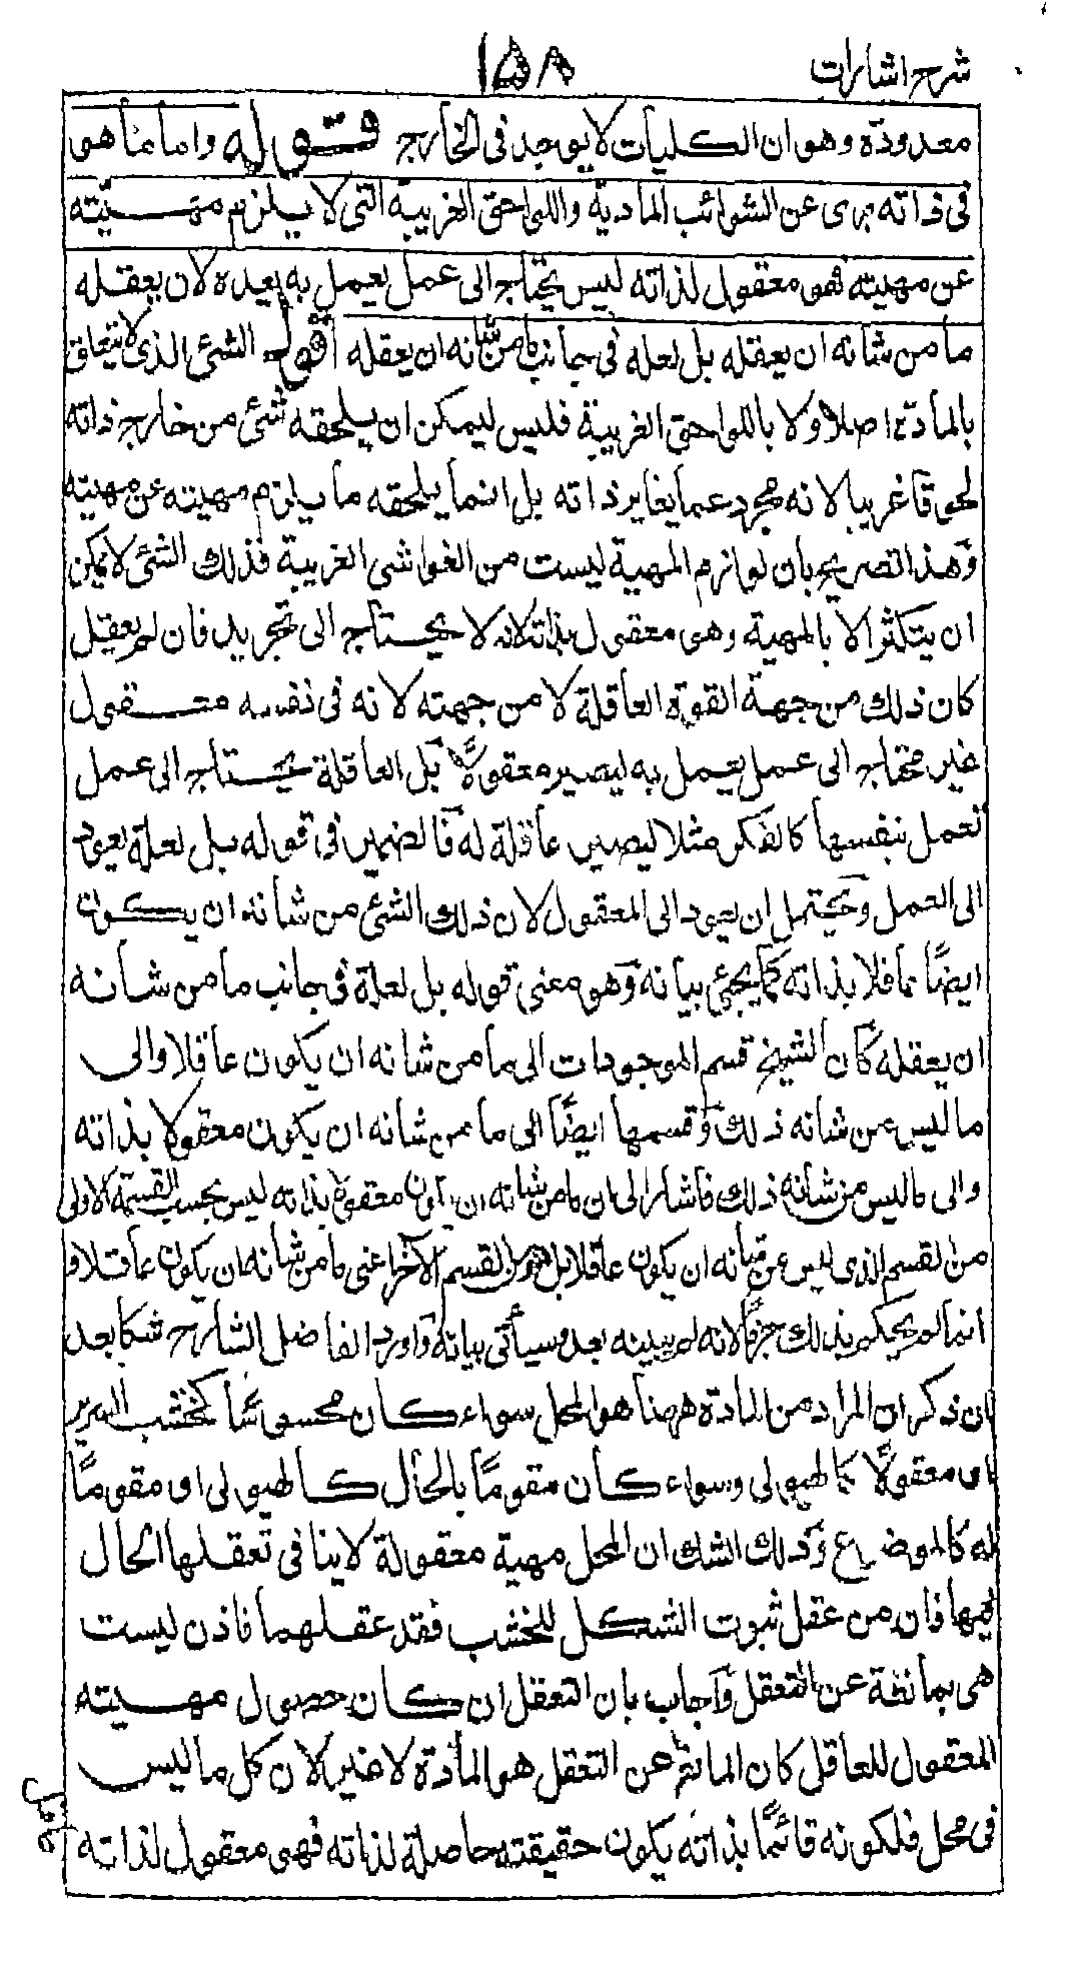 شرح اشارات
١٥٨
معدودة وهو ان الكليات لا يوجد فى الخارج قوله واما ما هو
فى ذاته برى عن الشوائب المادية واللواحق الغريبة التى لا يلزم مهيته
عن مهيته فهو معقول لذاته ليس يحتاج الى عمل يعمل به يعده لان يعقله
ما من شانه ان يعقله بل لعله فى جانب ما من شانه ان يعقله اقول الشئ الذى لا يتعلق
بالمادة اصلا ولا باللواحق الغريبة فليس ليمكن ان يلحقه شئ من خارج ذاته
لحوقا غريبا لانه مجرد عما يغاير ذاته بل انما يلحقه ما يلزم مهيته عن مهيته
وهذا تصريح بان لوازم المهية ليست من الغواشى الغريبة فذلك الشئ لا يمكن
ان يتكثر الا بالمهية وهى معقول بذاته لانه لا يحتاج الى تجريد فان لم يعقل
كان ذلك من جهة القوة العاقلة لا من جهته لانه فى نفسه معقول
غير محتاج الى عمل يعمل به ليصير معقولا بل العاقلة يحتاج الى عمل
تعمل بنفسها كالفكر مثلا ليصير عاقلة له فالضمير فى قوله بل لعله يعود
الى العمل ويحتمل ان يعود الى المعقول لان ذلك الشئ من شانه ان يكون
ايضا عاقلا بذاته كما يجئ بيانه وهو معنى قوله بل لعله فى جانب ما من شانه
ان يعقله كان الشيخ قسم الموجودات الى ما من شانه ان يكون عاقلا والى
ما ليس من شانه ذلك وقسمها ايضا الى ما من شانه ان يكون معقولا بذاته
والى ما ليس من شانه ذلك فاشار الى ان ما من شانه ان يكون معقولا بذاته ليس بحسب القسمة الاولى
من القسم الذى ليس من شانه ان يكون عاقلا بل هو من القسم الآخر اعنى ما من شانه ان يكون عاقلا و
انما لم يحكم بذلك جزما لانه لم يبينه بعد وسيأتى بيانه واورد الفاضل الشارح شكا بعد
ان ذكر ان المراد من المادة ههنا هو المحل سواء كان محسوسا كخشب السرير
او معقولا كالهيولى وسواء كان مقوما بالحال كالهيولى او مقوما
له كالموضوع وذلك الشك ان المحل مهية معقولة لا ينافى تعقلها الحال
فيها فان من عقل ثبوت الشكل للخشب فقد عقلهما فاذن ليست
هى بمانعة عن التعقل واجاب بان التعقل ان كان حصول مهية
المعقول للعاقل كان المانع عن التعقل هو المادة لا غير لان كل ما ليس
فى محل فلكونه قائما بذاته يكون حقيقته حاصلة لذاته فهى معقول لذاته